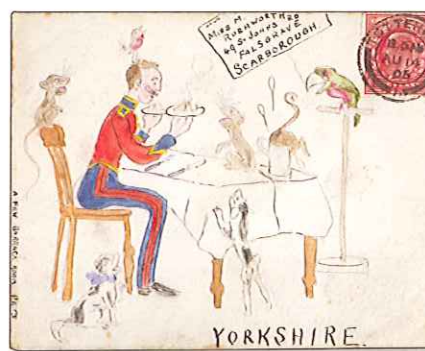 MISS M.
RUSHWORTH
49 ST. JOHNS
FALSGRAVE
SCARBOROUGH
AU 14
05
A FEW
YORKSHIRE.